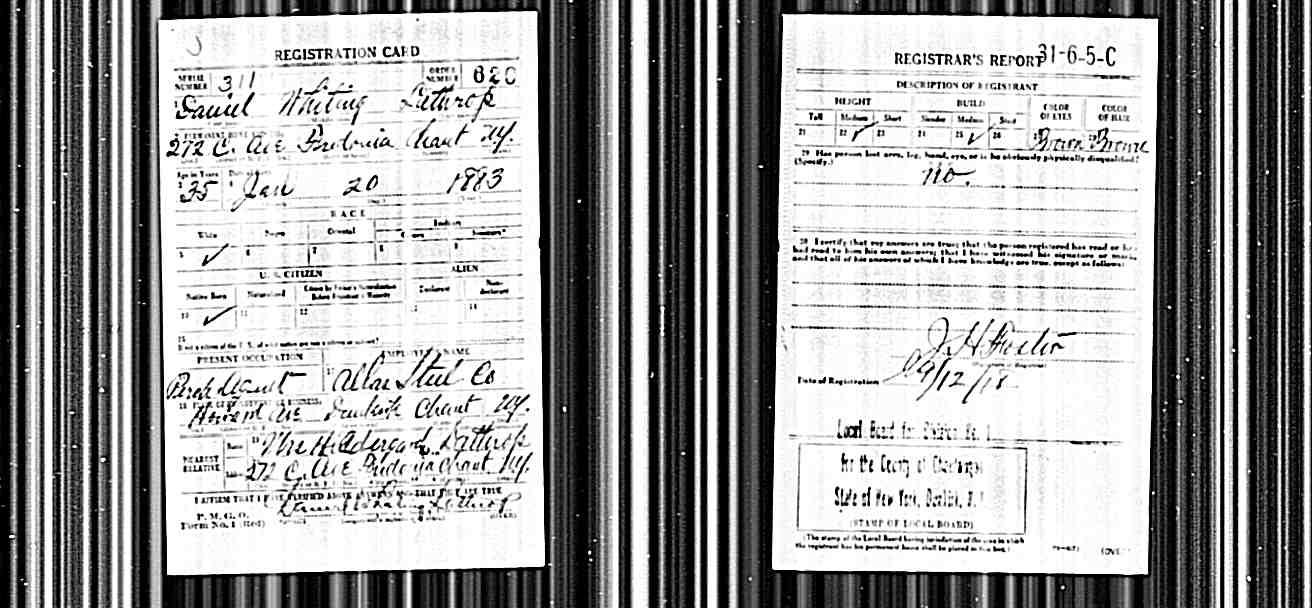 REGISTRATION CARD
SERIAL NUMBER 311 ORDER NUMBER 620
Daniel Whiting Lathrop
272 C. Ave Fredonia Chaut NY.
Age in Years
35 Jan 20 1883
RACE
White Negro Oriental Indian
Citizen
5 ✓ 6 7 8 9
U. S. CITIZEN ALIEN
Native Born Naturalized Declarant Non-declarant
10 ✓ 11 12 14
15
PRESENT OCCUPATION EMPLOYER'S NAME
Atlas Steel Co
Howard Ave Dunkirk Chaut NY.
NEAREST RELATIVE Name Mrs Lathrop
272 C. Ave Fredonia Chaut NY.
I AFFIRM THAT I HAVE VERIFIED ABOVE ANSWERS AND THAT THEY ARE TRUE
P. M. G. O.
Form No. 1 (Red) Daniel Whiting Lathrop
REGISTRAR'S REPORT 31-6-5-C
DESCRIPTION OF REGISTRANT
HEIGHT BUILD COLOR OF EYES COLOR OF HAIR
Tall Medium Short Slender Medium Stout
21 22 ✓ 23 24 25 ✓ 26 Brown Brown
29 Has person lost arm, leg, hand, eye, or is he obviously physically disqualified?
(Specify.)
no.
30 I certify that my answers are true; that the person registered has read or has
had read to him his own answers; that I have witnessed his signature or mark,
and that all of his answers of which I have knowledge are true, except as follows:
J H Foster
Date of Registration 9/12/18
Local Board for Division No. 1
for the County of Chautauqua
State of New York, Dunkirk, N. Y.
(STAMP OF LOCAL BOARD)
(The stamp of the Local Board having jurisdiction of the area in which
the registrant has his permanent home shall be placed in this box.)
(OVER)